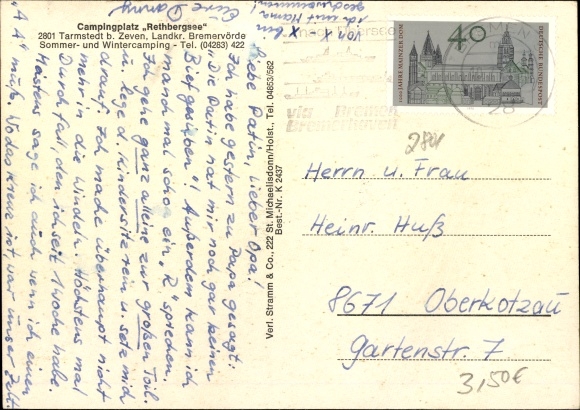 Campingplatz „Rethbergsee"
2801 Tarmstedt b. Zeven, Landkr. Bremervörde
Sommer- und Wintercamping - Tel. (04283) 422
Liebe Patin, Lieber Opa!
Ich habe gestern zu Papa gesagt:
"Die Patin hat mir noch gar keinen
Brief geschieben"! Außerdem kann ich
manchmal schon ein "R" sprechen.
Ich gehe ganz alleine zur großen Toil.
u. lege d. Kindersitz rein u. setze mich
drauf. Ich mache überhaupt nicht
mehr in die Windeln. Höchstens mal
Durchfall, den ich seit 1 Woche habe.
Meistens sage ich auch wenn ich einen
"A A" muß. Wo das Kreuz ist, war unser Zelt.
Von X - X bin
ich mit Mama
geschwommen!
Eure Danny
Verl. Stramm & Co., 222 St. Michaelisdonn/Holst., Tel. 04853/562
Best.-Nr. K 2437
via Bremen
Bremerhaven
40
1000 JAHRE MAINZER DOM
DEUTSCHE BUNDESPOST
28
2801
Herrn u. Frau
Heinr. Huß
8671 Oberkotzau
Gartenstr. 7
3,50€